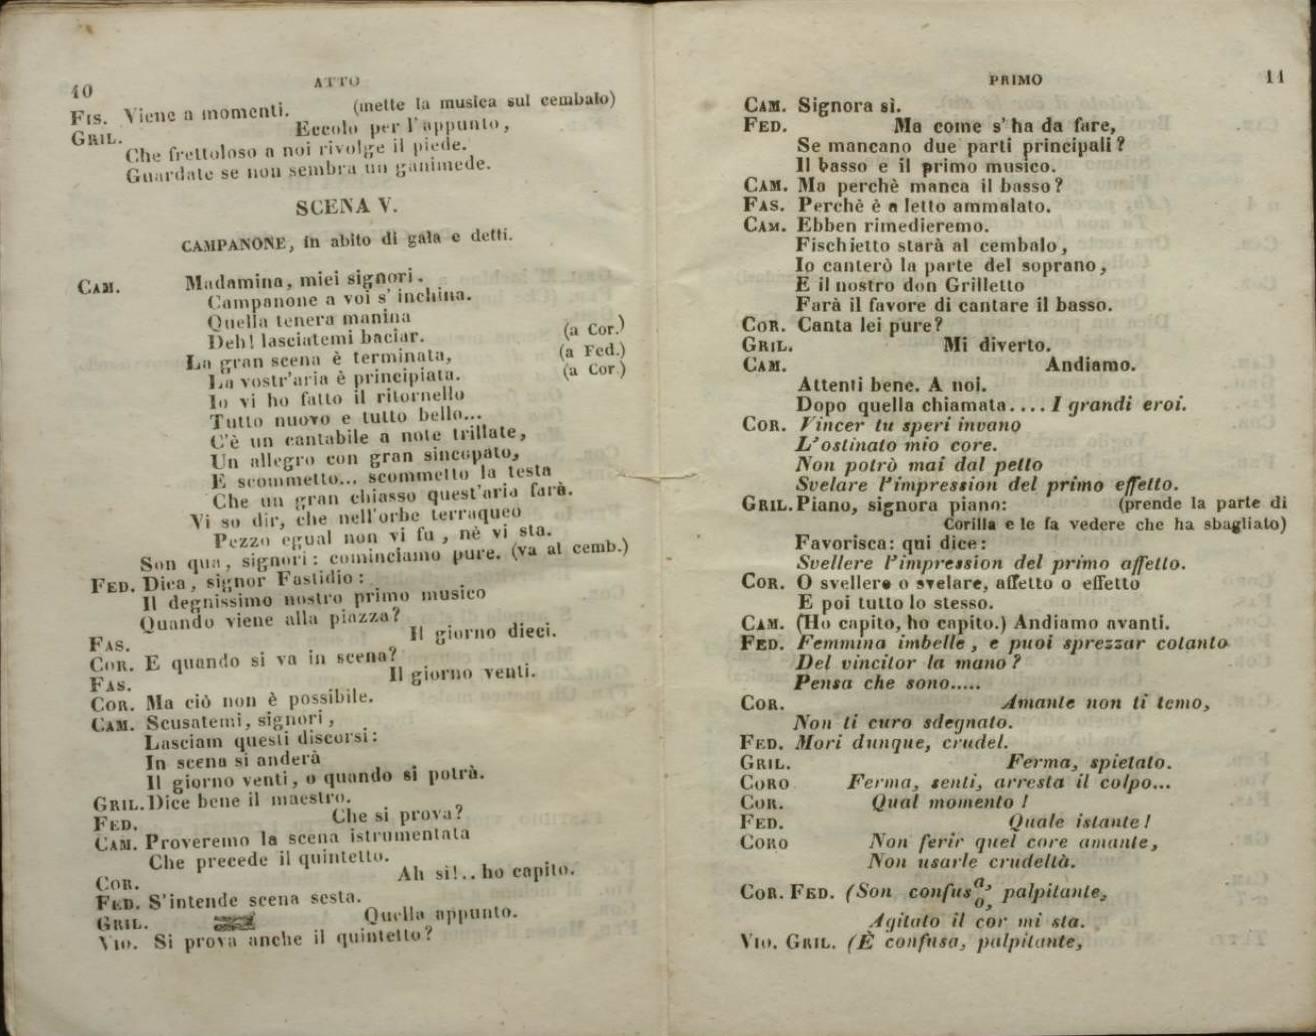 10
ATTO
FIS. Viene a momenti. (mette la musica sul cembalo)
GRIL. Eccolo per l'appunto,
Che frettoloso a noi rivolge il piede.
Guardate se non sembra un ganimede.
SCENA V.
CAMPANONE, in abito di gala e detti.
CAM. Madamina, miei signori.
Campanone a voi s'inchina.
Quella tenera manina
Deh! lasciatemi baciar. (a Cor.)
La gran scena è terminata, (a Fed.)
La vostr'aria è principiata. (a Cor.)
Io vi ho fatto il ritornello
Tutto nuovo e tutto bello...
C'è un cantabile a note trillate,
Un allegro con gran sincopato,
E scommetto... scommetto la testa
Che un gran chiasso quest'aria farà.
Vi so dir, che nell'orbe terraqueo
Pezzo egual non vi fu, nè vi sta.
Son qua, signori: cominciamo pure. (va al cemb.)
FED. Dica, signor Fastidio:
Il degnissimo nostro primo musico
Quando viene alla piazza?
FAS. Il giorno dieci.
COR. E quando si va in scena?
FAS. Il giorno venti.
COR. Ma ciò non è possibile.
CAM. Scusatemi, signori,
Lasciam questi discorsi:
In scena si anderà
Il giorno venti, o quando si potrà.
GRIL. Dice bene il maestro.
FED. Che si prova?
CAM. Proveremo la scena istrumentata
Che precede il quintetto.
COR. Ah sì!.. ho capito.
FED. S'intende scena sesta.
GRIL. Quella appunto.
VIO. Si prova anche il quintetto?
PRIMO
11
CAM. Signora sì.
FED. Ma come s'ha da fare,
Se mancano due parti principali?
Il basso e il primo musico.
CAM. Ma perchè manca il basso?
FAS. Perchè è a letto ammalato.
CAM. Ebben rimedieremo.
Fischietto starà al cembalo,
Io canterò la parte del soprano,
E il nostro don Grilletto
Farà il favore di cantare il basso.
COR. Canta lei pure?
GRIL. Mi diverto.
CAM. Andiamo.
Attenti bene. A noi.
Dopo quella chiamata.... I grandi eroi.
COR. Vincer tu speri invano
L'ostinato mio core.
Non potrò mai dal petto
Svelare l'impression del primo effetto.
GRIL. Piano, signora piano: (prende la parte di
Corilla e le fa vedere che ha sbagliato)
Favorisca: qui dice:
Svellere l'impression del primo affetto.
COR. O svellere o svelare, affetto o effetto
E poi tutto lo stesso.
CAM. (Ho capito, ho capito.) Andiamo avanti.
FED. Femmina imbelle, e puoi sprezzar cotanto
Del vincitor la mano?
Pensa che sono.....
COR. Amante non ti temo,
Non ti curo sdegnato.
FED. Mori dunque, crudel.
GRIL. Ferma, spietato.
CORO Ferma, senti, arresta il colpo...
COR. Qual momento!
FED. Quale istante!
CORO Non ferir quel core amante,
Non usarle crudeltà.
COR. FED. (Son confus a, o, palpitante,
Agitato il cor mi sta.
VIO. GRIL. (È confusa, palpitante,